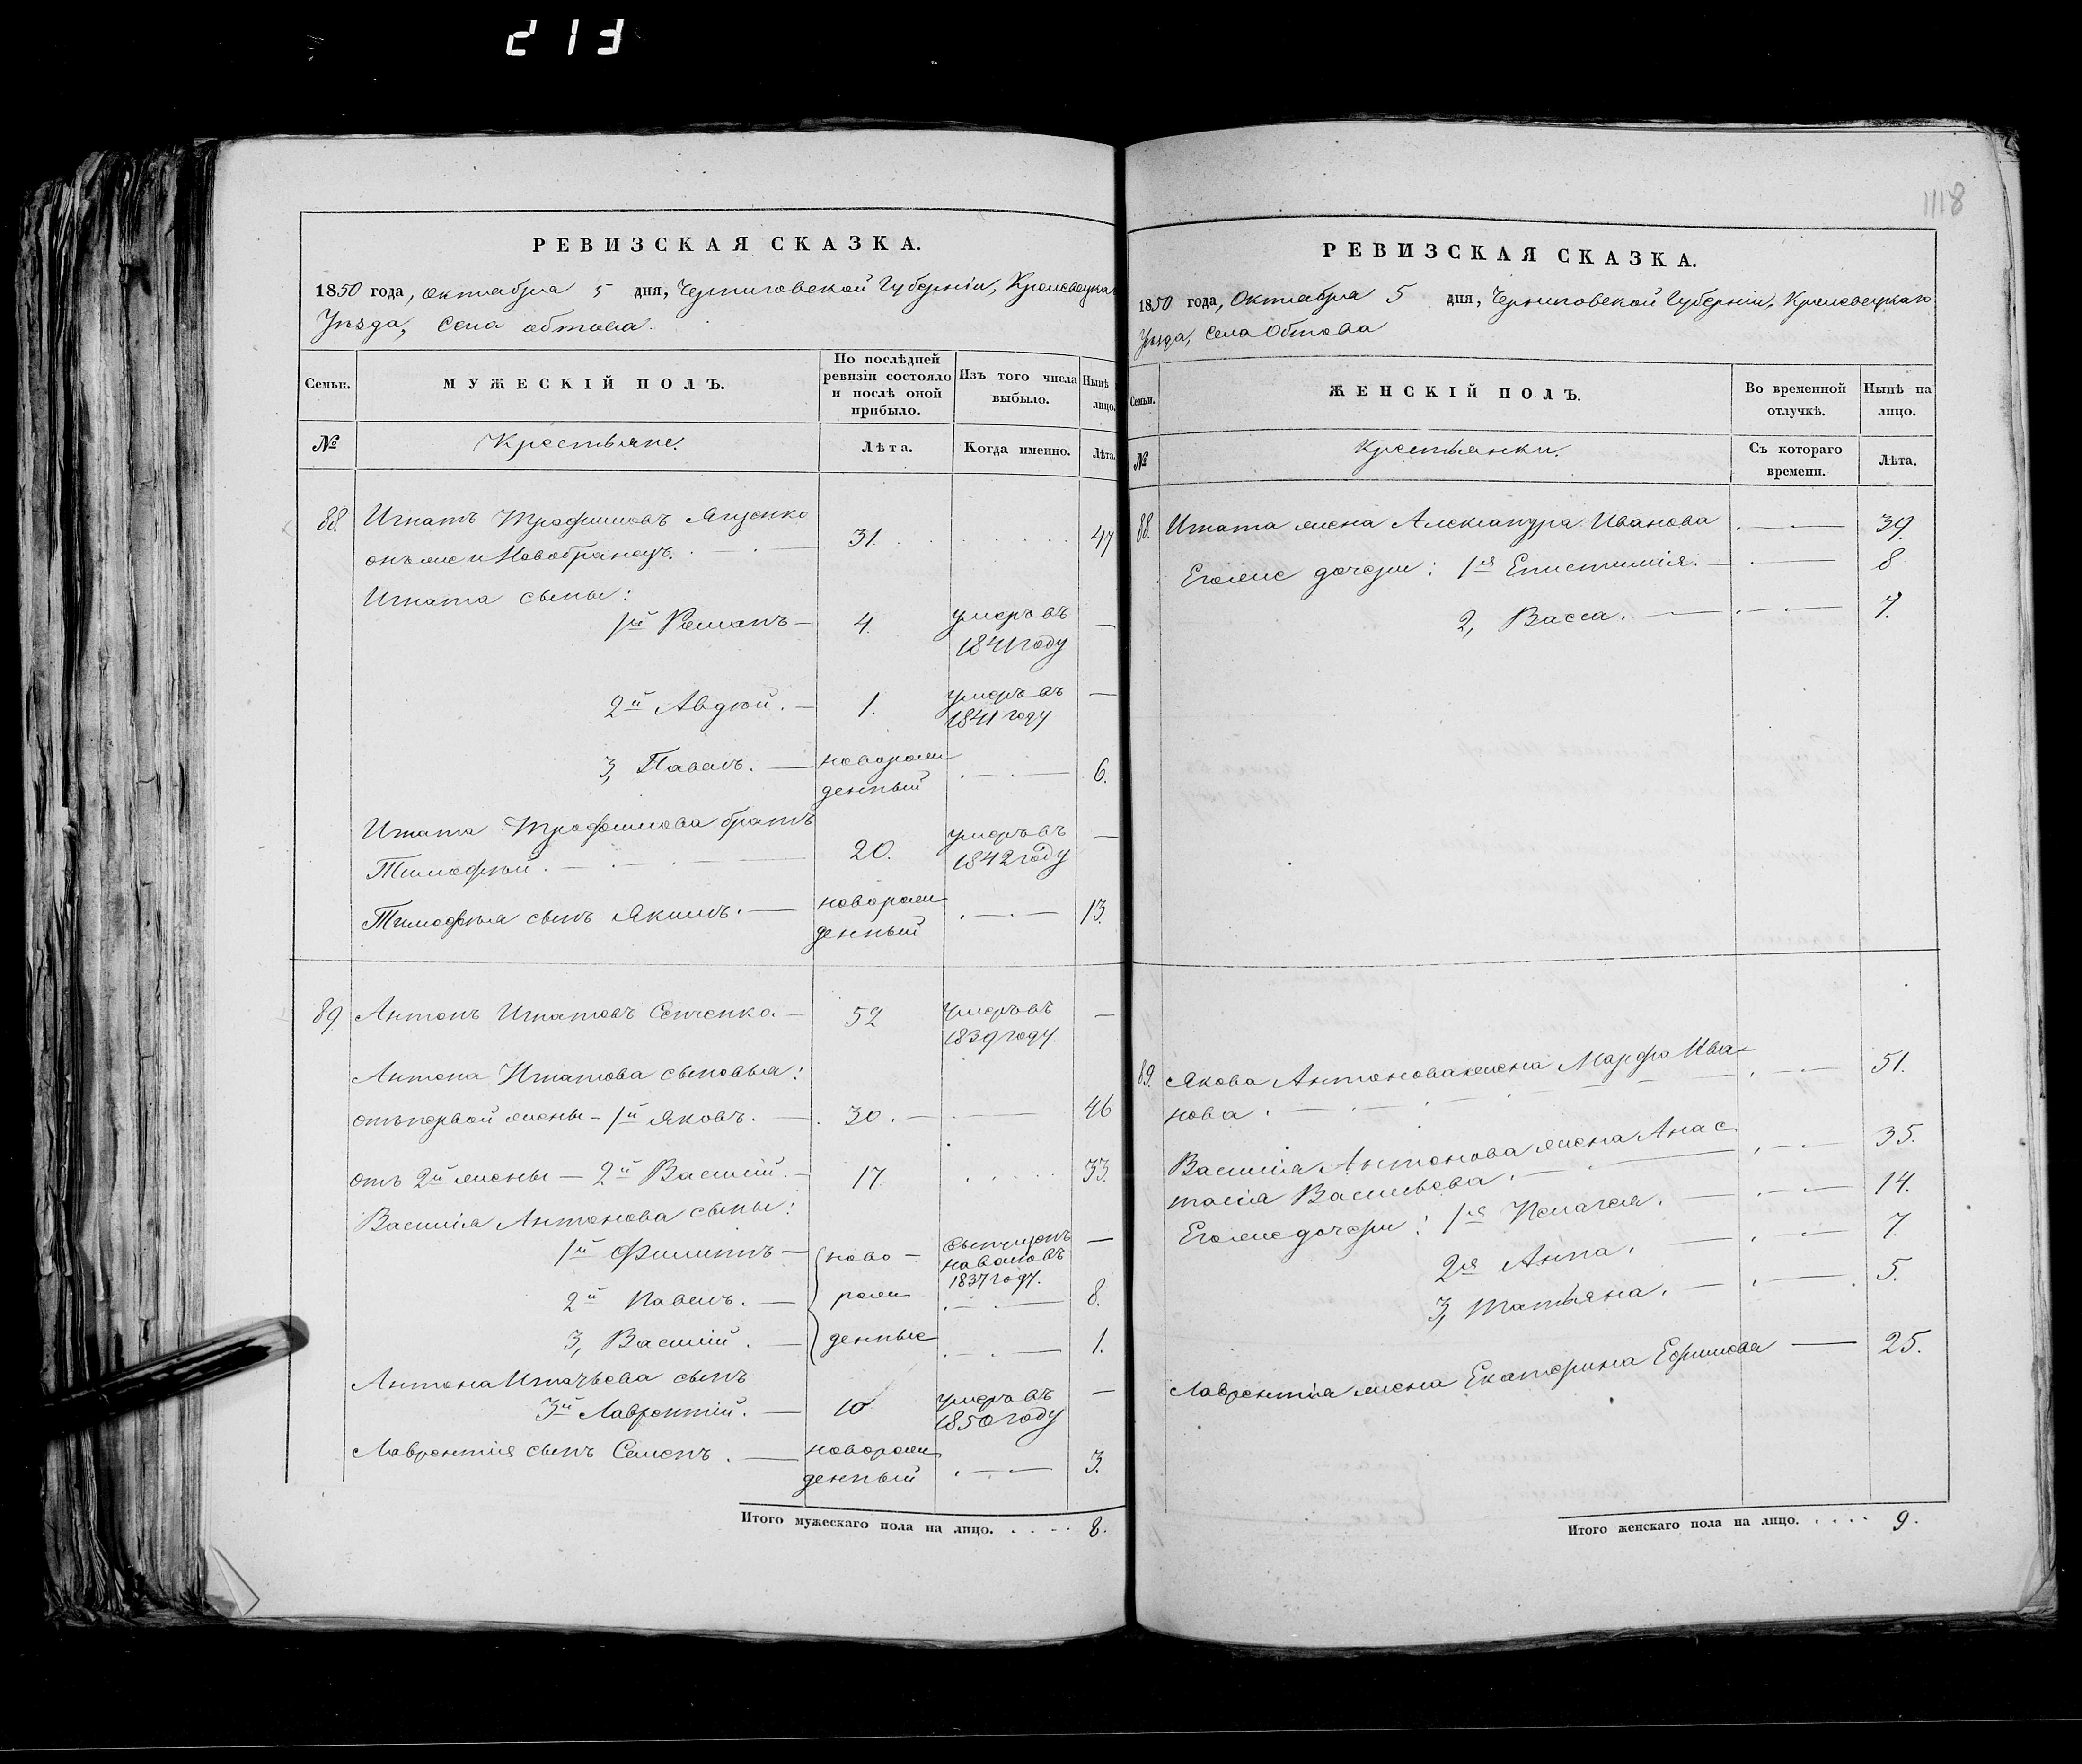 213
1118
РЕВИЗСКАЯ СКАЗКА.
1850 года, октября 5 дня, Черниговской Губерніи, Кролевецкаго
Уѣзда, Села Обтова.
Семьи.
МУЖЕСКІЙ ПОЛЪ.
По послѣдней ревизіи состояло и послѣ оной прибыло.
Изъ того числа выбыло.
Нынѣ на лицо.
№
Крестьяне.
Лѣта.
Когда именно.
Лѣта.
88. Игнатъ Трофимовъ Ягусенко
онъ же и Новобранецъ. 31. 47
Игната сыны:
1й Романъ — 4. умеръ въ —
1841 году
2й Авдѣй. — 1. умеръ въ —
1841 году
3, Павелъ. — новорож 6.
денный
Игната Трофимова братъ
Тимофѣй. 20. умеръ въ —
1842 году
Тимофѣя сынъ Якимъ. — новорож 13.
денный
89 Антонъ Игнатовъ Сенченко — 52 умеръ въ —
1839 году.
Антона Игнатова сыновья:
отъ первой жены — 1й Яковъ. — 30. — 46
отъ 2й жены — 2й Василій. — 17. 33.
Василія Антонова сыны:
1й Филиппъ — ново —
1837 году.
2й Павелъ. — рож 8.
3, Василій. — денные 1.
Антона Игнатьева сынъ
3й Лаврентій. — 10 умеръ въ —
1850 году
Лаврентія сынъ Семенъ. — новорож 3.
денный
Итого мужескаго пола на лицо. . . . . 8.
РЕВИЗСКАЯ СКАЗКА.
1850 года, Октября 5 дня, Черниговской Губерніи, Кролевецкаго
Уѣзда, Села Обтова
Семьи.
ЖЕНСКІЙ ПОЛЪ.
Во временной отлучкѣ.
Нынѣ на лицо.
№
Крестьянки.
Съ котораго времени.
Лѣта.
88. Игната жена Александра Иванова — 39.
Его же дочери: 1я Епистимія. — 8
2, Васса. — 7.
89. Якова Антонова жена Марфа Ива- — 51.
нова.
Василія Антонова жена Анас — 35.
тасія Васильева.
Его же дочери: 1я Пелагея. — 14.
2я Анна. — 7.
3, Татьяна. — 5.
Лаврентія жена Екатерина Ефимова — 25.
Итого женскаго пола на лицо. . . . . 9.